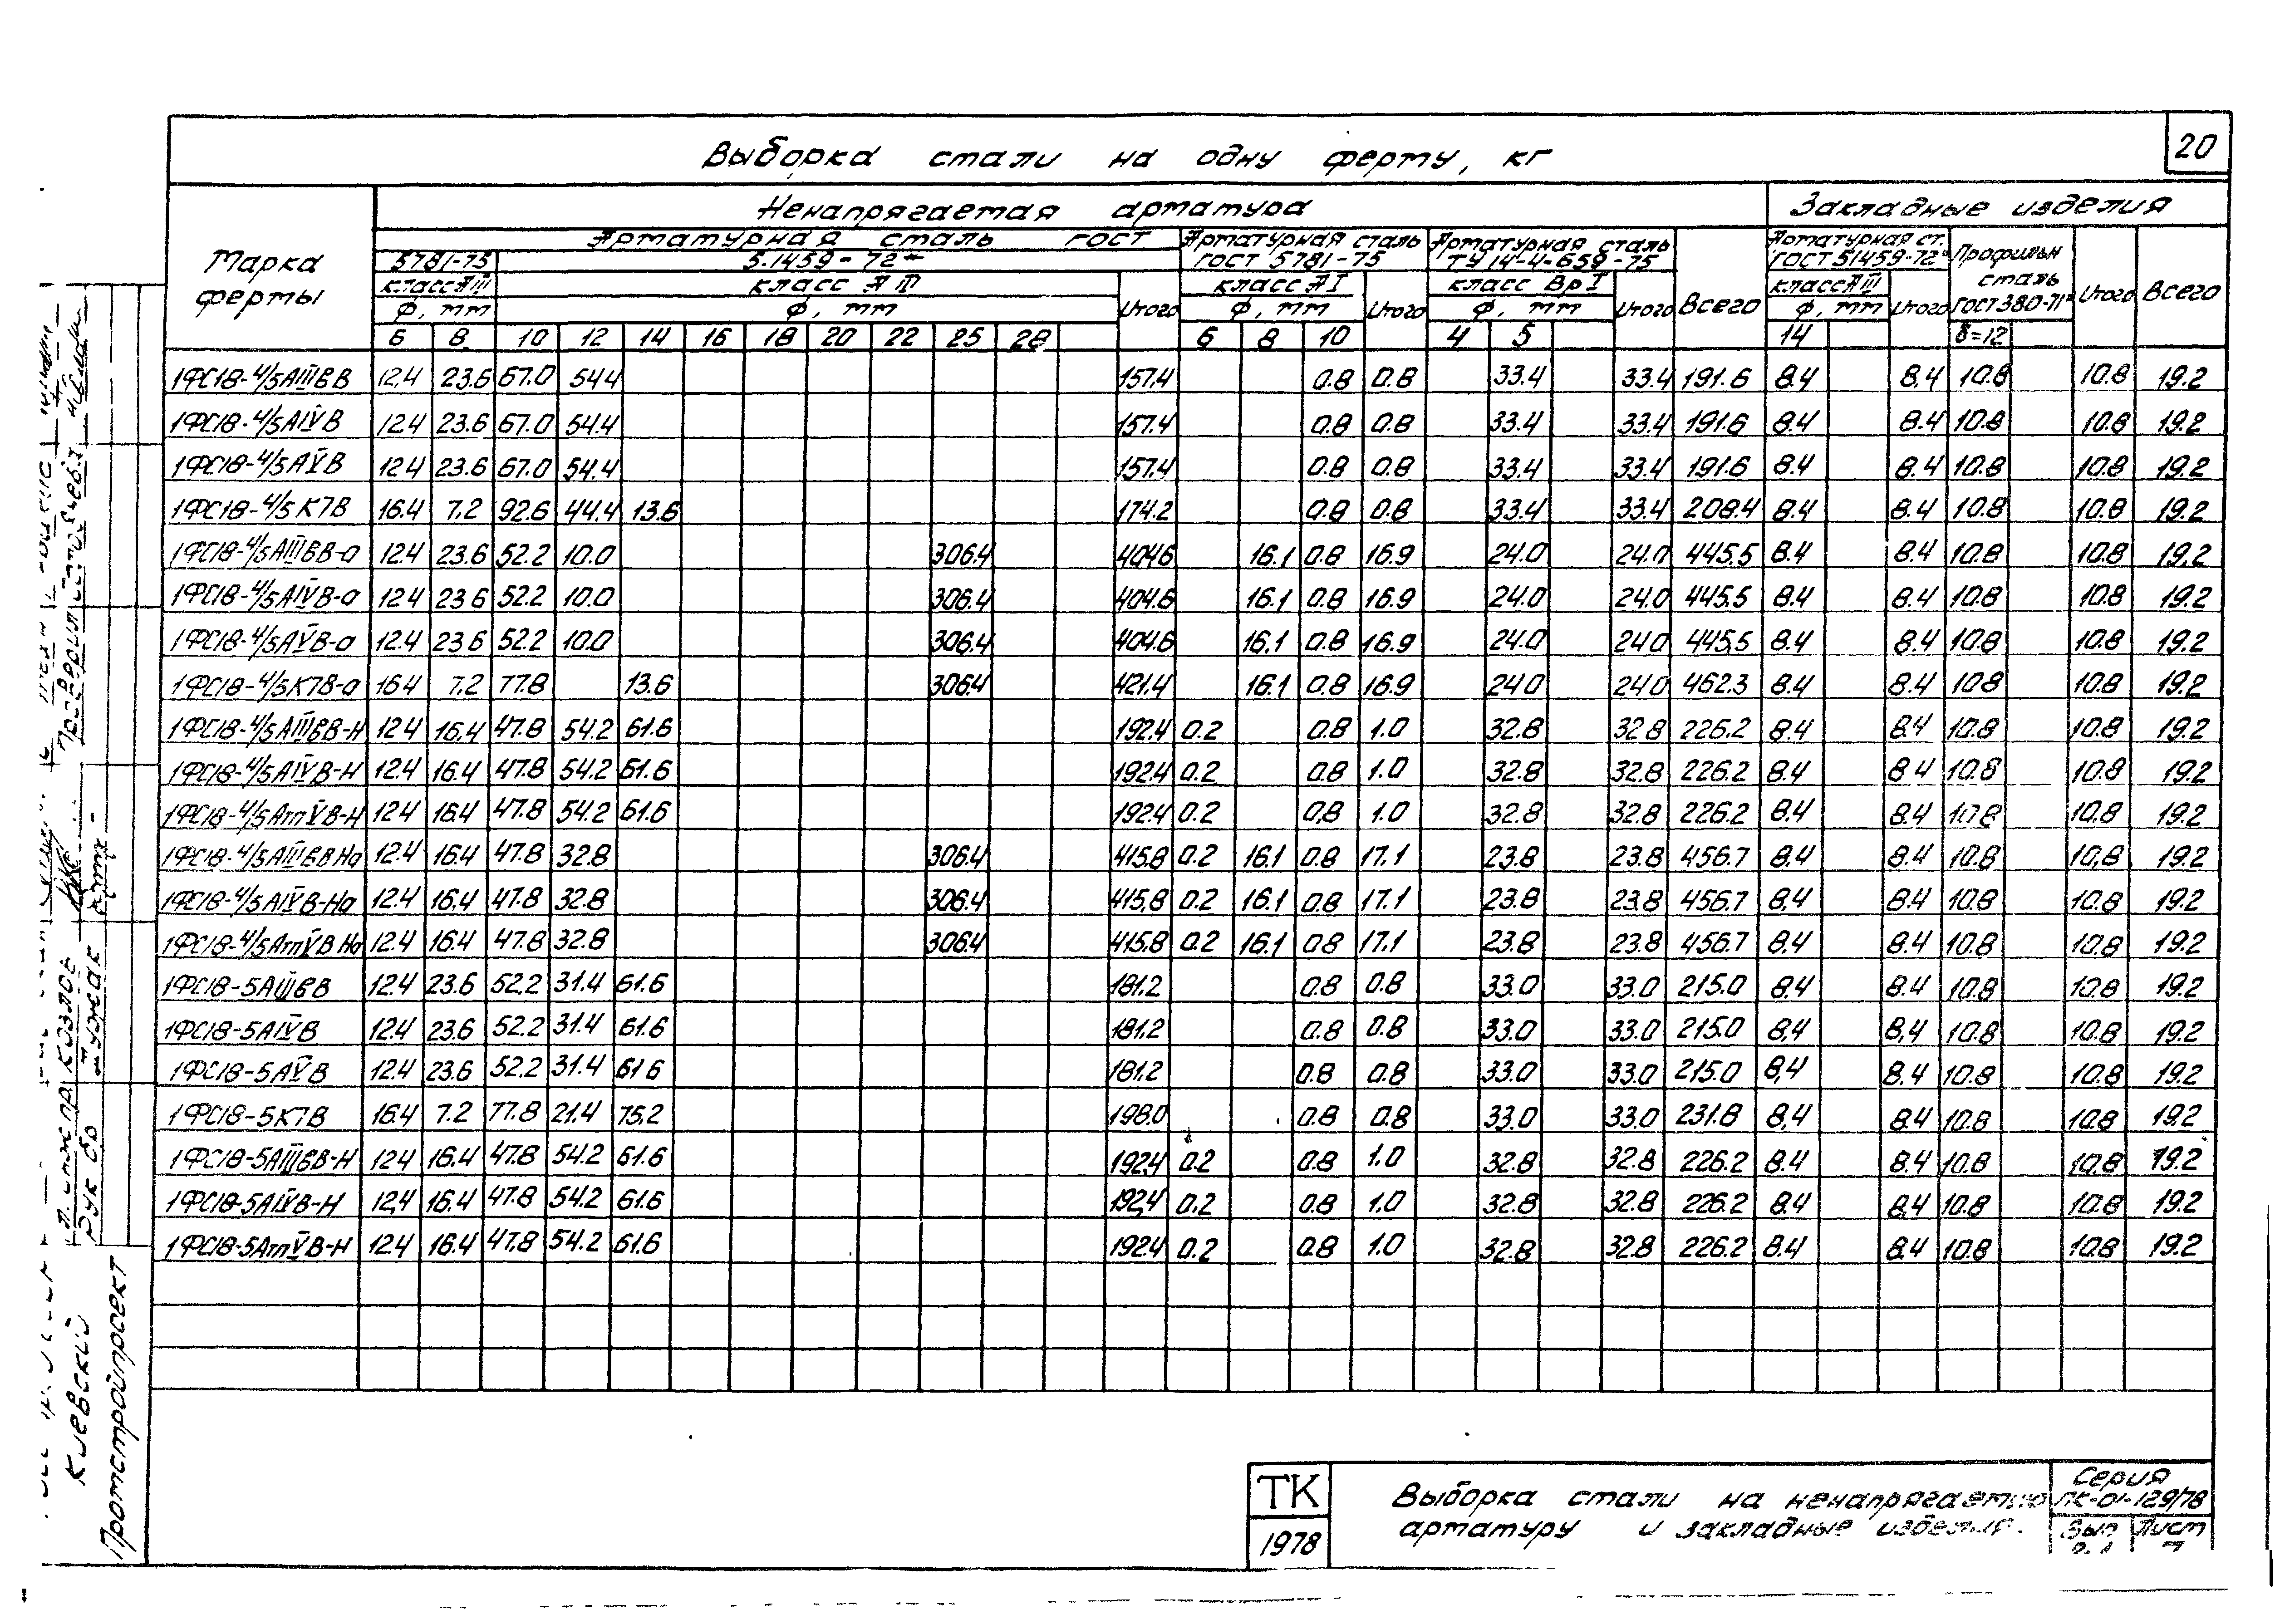 20
Выборка стали на одну ферму, кг
Марка фермы
Ненапрягаемая арматура
Закладные изделия
Арматурная сталь ГОСТ
5781-75
5.1459-72*
класс АIII
класс А III
Ф, мм
Ф, мм
Итого
Арматурная сталь ГОСТ 5781-75
класс АI
Ф, мм
Итого
Арматурная сталь ТУ 14-4-659-75
класс ВрI
Ф, мм
Итого
Всего
Арматурная ст. ГОСТ 51459-72*
класс АIII
Ф, мм
Итого
Профильн сталь ГОСТ 380-71*
Итого
Всего
6 8 10 12 14 16 18 20 22 25 28 6 8 10 4 5 14 δ=12
1ФС18-4/5АIIIвВ 12.4 23.6 67.0 54.4 157.4 0.8 0.8 33.4 33.4 191.6 8.4 8.4 10.8 10.8 19.2
1ФС18-4/5АIVВ 12.4 23.6 67.0 54.4 157.4 0.8 0.8 33.4 33.4 191.6 8.4 8.4 10.8 10.8 19.2
1ФС18-4/5АVВ 12.4 23.6 67.0 54.4 157.4 0.8 0.8 33.4 33.4 191.6 8.4 8.4 10.8 10.8 19.2
1ФС18-4/5К7В 16.4 7.2 92.6 44.4 13.6 174.2 0.8 0.8 33.4 33.4 208.4 8.4 8.4 10.8 10.8 19.2
1ФС18-4/5АIIIвВ-а 12.4 23.6 52.2 10.0 306.4 404.6 16.1 0.8 16.9 24.0 24.0 445.5 8.4 8.4 10.8 10.8 19.2
1ФС18-4/5АIVВ-а 12.4 23.6 52.2 10.0 306.4 404.6 16.1 0.8 16.9 24.0 24.0 445.5 8.4 8.4 10.8 10.8 19.2
1ФС18-4/5АVВ-а 12.4 23.6 52.2 10.0 306.4 404.6 16.1 0.8 16.9 24.0 24.0 445.5 8.4 8.4 10.8 10.8 19.2
1ФС18-4/5К7В-а 16.4 7.2 77.8 13.6 306.4 421.4 16.1 0.8 16.9 24.0 24.0 462.3 8.4 8.4 10.8 10.8 19.2
1ФС18-4/5АIIIвВ-Н 12.4 16.4 47.8 54.2 61.6 192.4 0.2 0.8 1.0 32.8 32.8 226.2 8.4 8.4 10.8 10.8 19.2
1ФС18-4/5АIVВ-Н 12.4 16.4 47.8 54.2 61.6 192.4 0.2 0.8 1.0 32.8 32.8 226.2 8.4 8.4 10.8 10.8 19.2
1ФС18-4/5АтVВ-Н 12.4 16.4 47.8 54.2 61.6 192.4 0.2 0.8 1.0 32.8 32.8 226.2 8.4 8.4 10.8 10.8 19.2
1ФС18-4/5АIIIвВНа 12.4 16.4 47.8 32.8 306.4 415.8 0.2 16.1 0.8 17.1 23.8 23.8 456.7 8.4 8.4 10.8 10.8 19.2
1ФС18-4/5АIVВ-На 12.4 16.4 47.8 32.8 306.4 415.8 0.2 16.1 0.8 17.1 23.8 23.8 456.7 8.4 8.4 10.8 10.8 19.2
1ФС18-4/5АтVВ На 12.4 16.4 47.8 32.8 306.4 415.8 0.2 16.1 0.8 17.1 23.8 23.8 456.7 8.4 8.4 10.8 10.8 19.2
1ФС18-5АIIIвВ 12.4 23.6 52.2 31.4 61.6 181.2 0.8 0.8 33.0 33.0 215.0 8.4 8.4 10.8 10.8 19.2
1ФС18-5АIVВ 12.4 23.6 52.2 31.4 61.6 181.2 0.8 0.8 33.0 33.0 215.0 8.4 8.4 10.8 10.8 19.2
1ФС18-5АVВ 12.4 23.6 52.2 31.4 61.6 181.2 0.8 0.8 33.0 33.0 215.0 8.4 8.4 10.8 10.8 19.2
1ФС18-5К7В 16.4 7.2 77.8 21.4 75.2 198.0 0.8 0.8 33.0 33.0 231.8 8.4 8.4 10.8 10.8 19.2
1ФС18-5АIIIвВ-Н 12.4 16.4 47.8 54.2 61.6 192.4 0.2 0.8 1.0 32.8 32.8 226.2 8.4 8.4 10.8 10.8 19.2
1ФС18-5АIVВ-Н 12.4 16.4 47.8 54.2 61.6 192.4 0.2 0.8 1.0 32.8 32.8 226.2 8.4 8.4 10.8 10.8 19.2
1ФС18-5АтVВ-Н 12.4 16.4 47.8 54.2 61.6 192.4 0.2 0.8 1.0 32.8 32.8 226.2 8.4 8.4 10.8 10.8 19.2
Киевский
Промстройпроект
ТК
1978
Выборка стали на ненапрягаемую
арматуру и закладные изделия.
Серия
ПК-01-129/78
Вып Лист
7